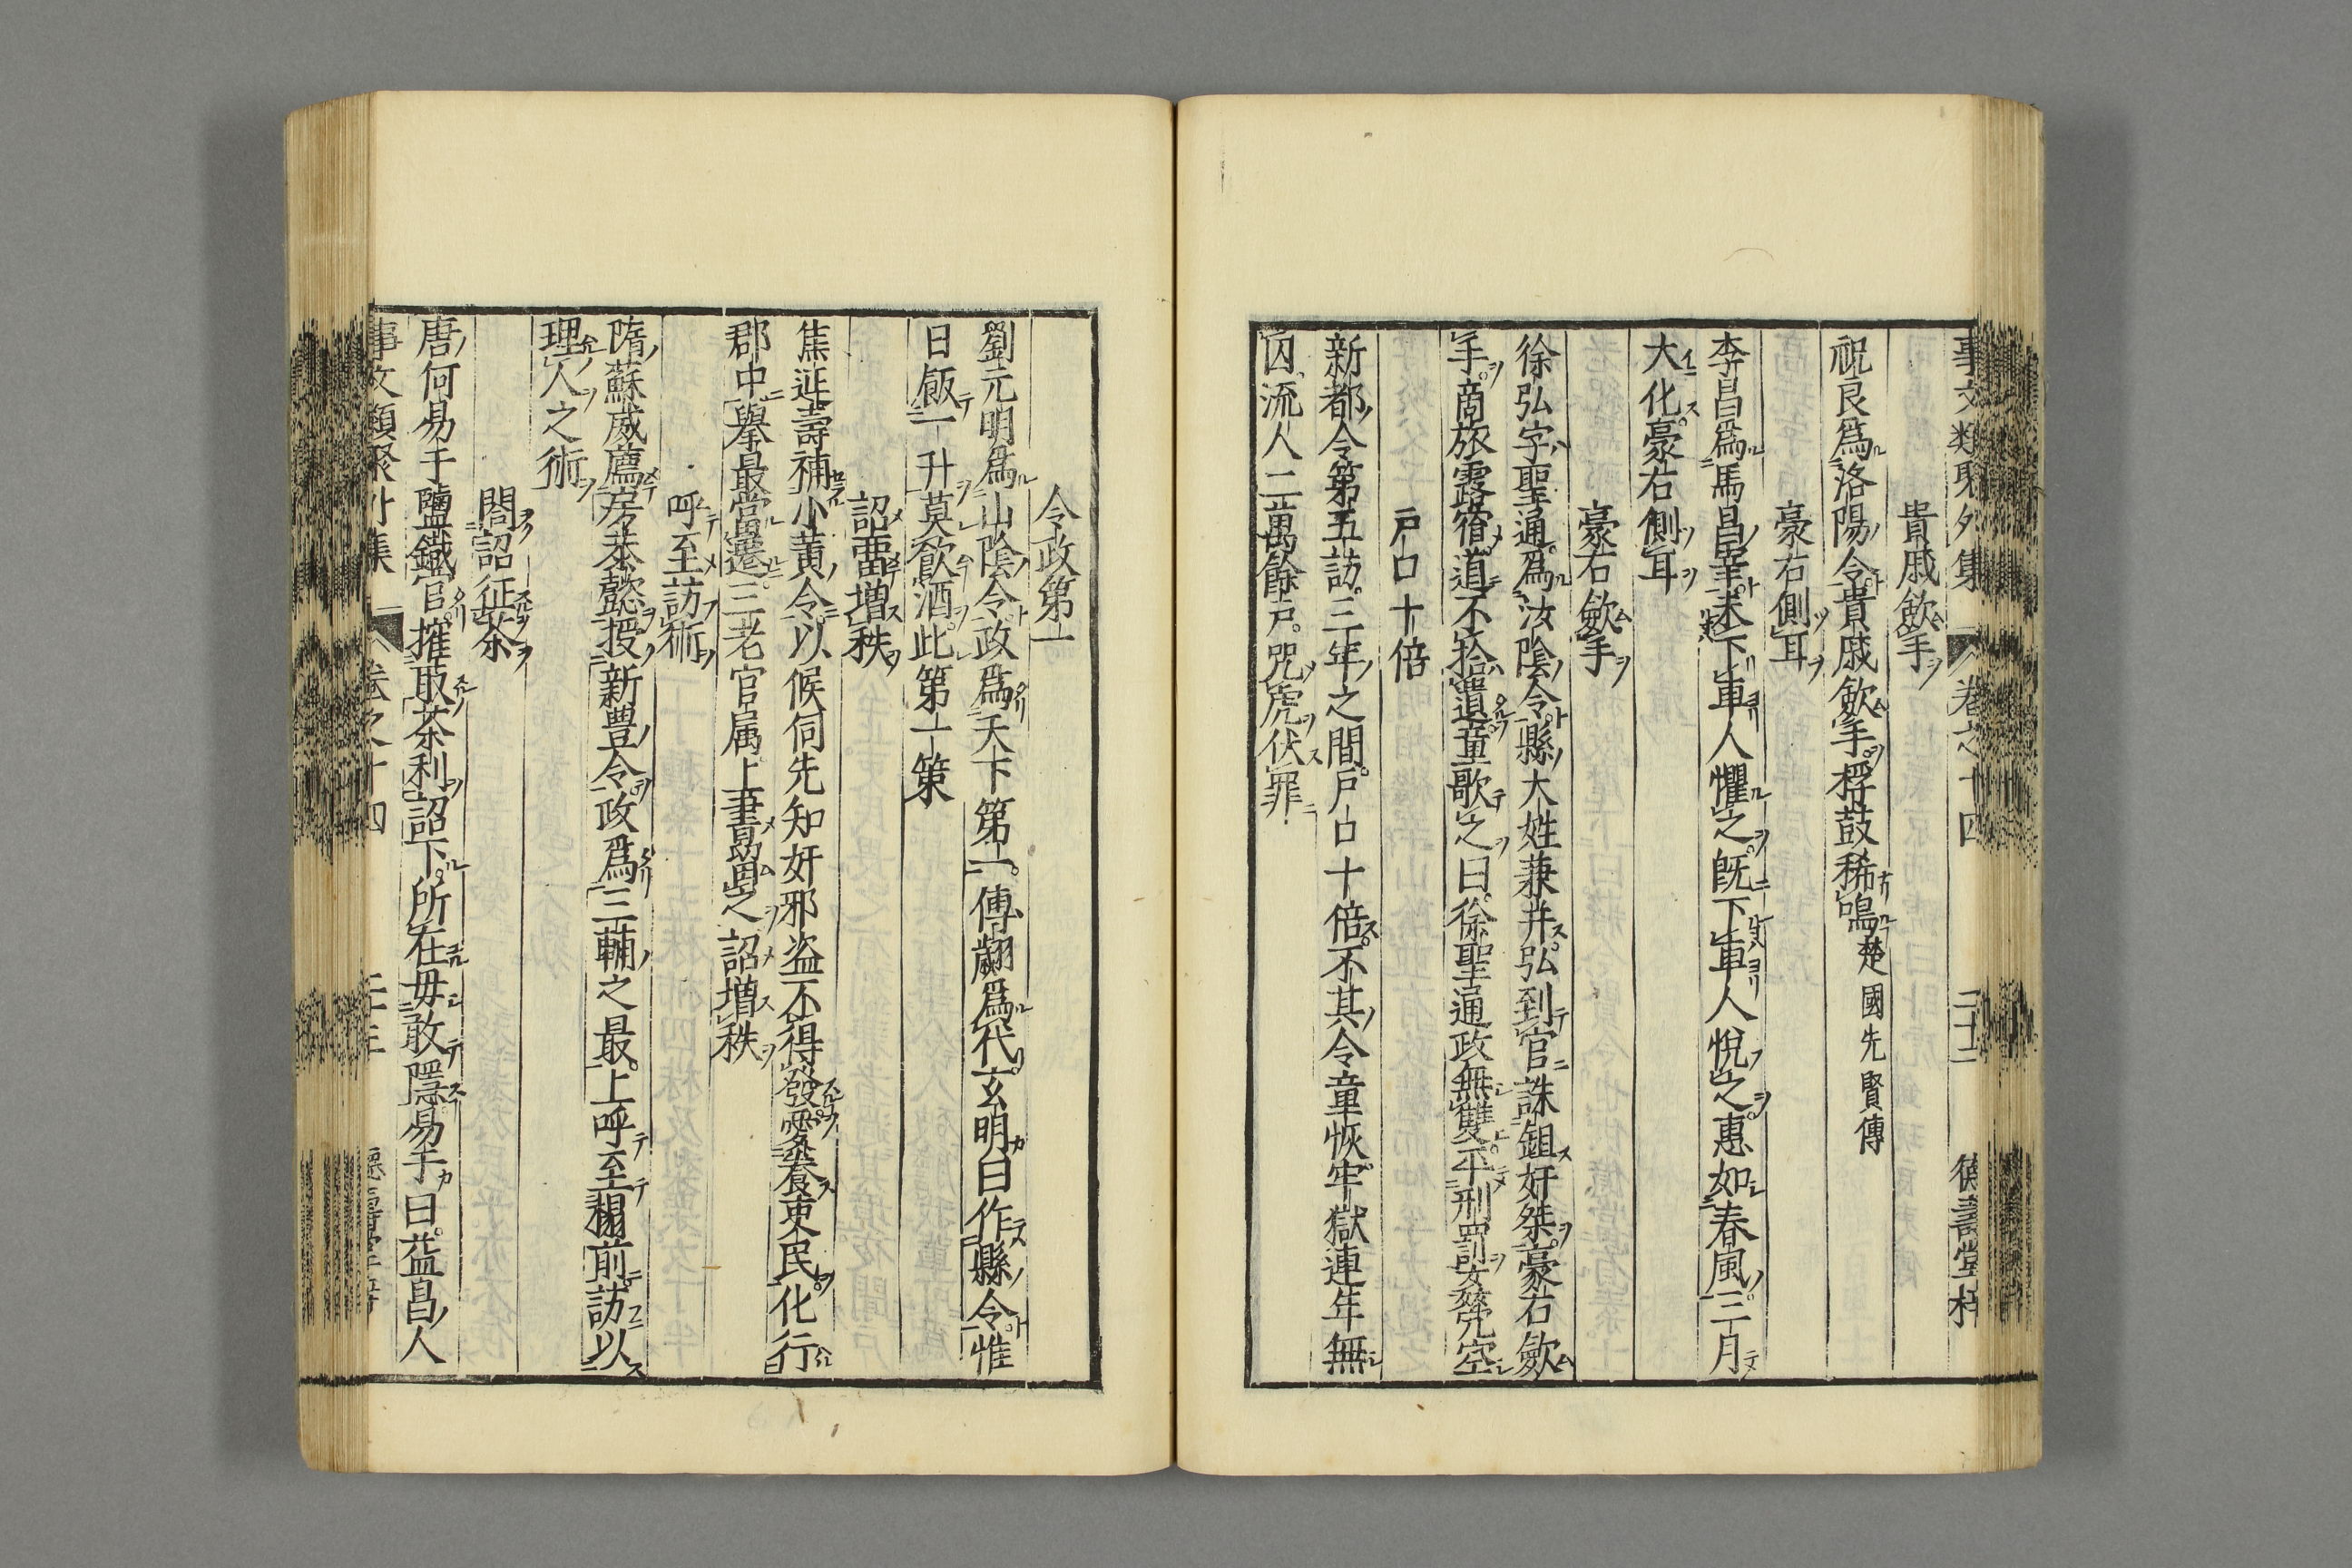 事文類聚外集 卷之十四 二十二 德壽堂梓
貴戚斂手
祝良爲洛陽令貴戚斂手桴鼓稀鳴楚國先賢傳
豪右側耳
李昌爲馬昌宰未下車人懼之旣下車人悅之惠如春風三月
大化豪右側耳
豪右斂手
徐弘字聖通爲汝陰令縣大姓兼并弘到官誅鉏奸桀豪右斂
手商旅露宿道不拾遺童歌之曰徐聖通政無雙平刑罰姦宄空
戸口十倍
新都令第五訪三年之間戸口十倍不其令童恢牢獄連年無
囚流人二萬餘戸咒虎伏罪
令政第一
劉元明爲山陰令政爲天下第一傅翽爲代玄明曰作縣令惟
日飯一升莫飮酒此第一策
詔璽增秩
焦延壽補小黃令以候伺先知奸邪盗不得發愛養吏民化行
郡中舉最當遷三老官属上書畱之詔増秩
呼至訪術
隋蘇威薦房恭懿授新豊令政爲三輔之最上呼至榻前訪以
理人之術
閣詔征茶
唐何易于鹽鐵官搉取茶利詔下所在毋敢隱易于曰益昌人
事文類聚外集 卷之十四